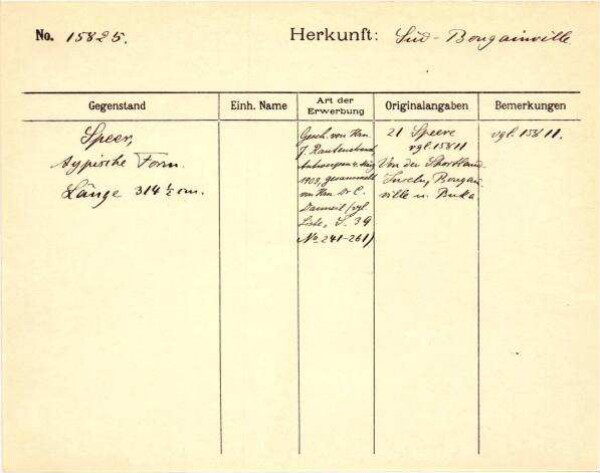 No. 15825. Herkunft: Süd-Bougainville
Gegenstand Einh. Name Art der Erwerbung Originalangaben Bemerkungen
Speer,
atypische Form.
Länge 314 ½ cm.
Gesch. von Hrn
J. Rautenstrauch
Antwerpen
1903, gesammelt
von Hrn Dr C.
Danneil (vgl.
Liste, S. 39
No 241-261)
21 Speere
vgl. 15811
Von den Shortland
Inseln, Bougain
ville u. Buka
vgl. 15811.